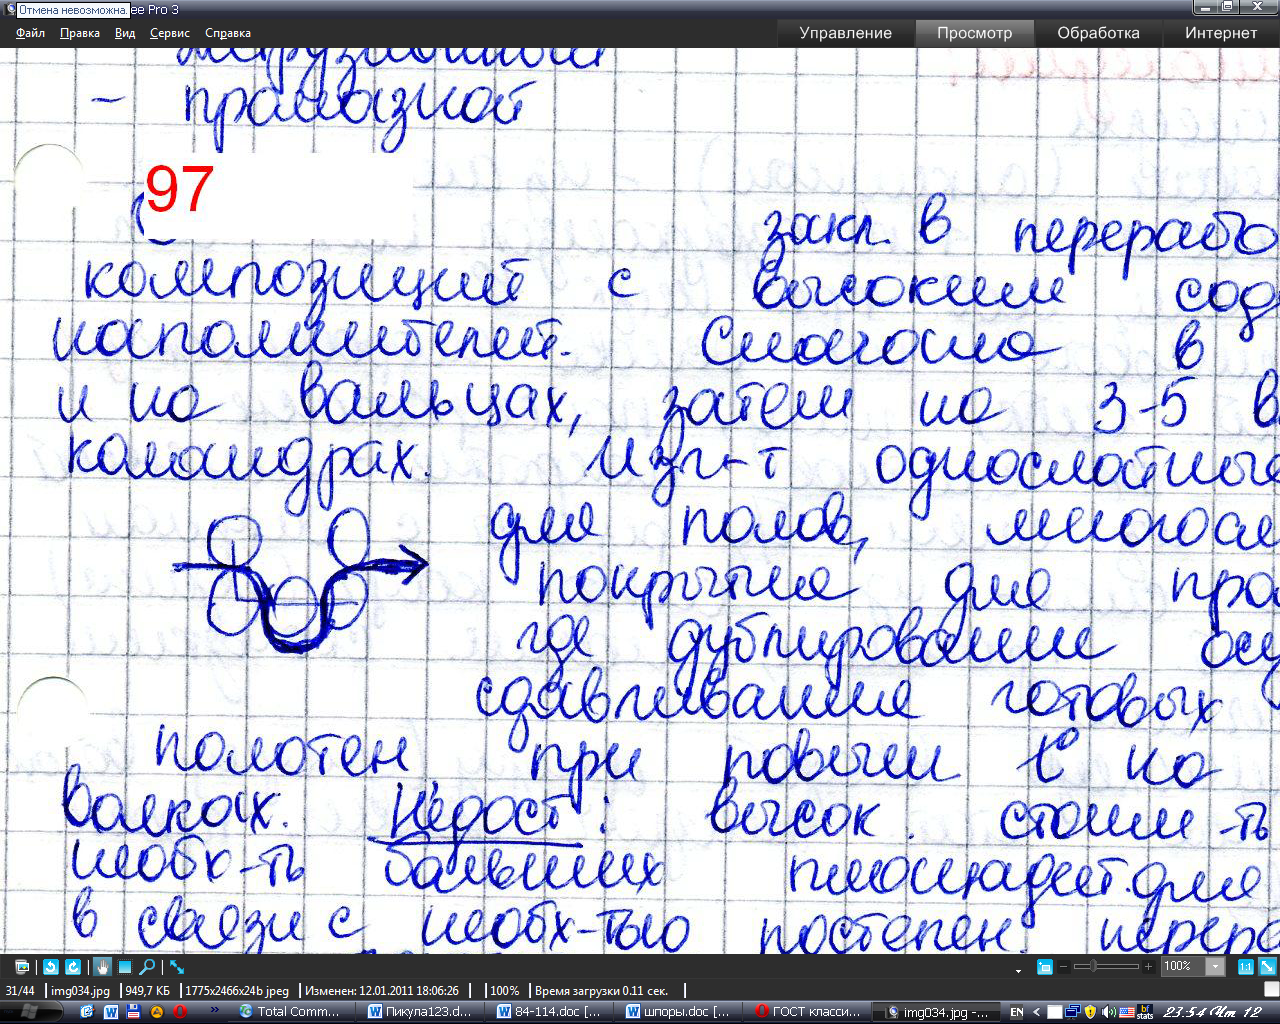 Отмена невозможна.ee Pro 3
Файл Правка Вид Сервис Справка Управление Просмотр Обработка Интернет
- промазной
97
закл. в перерабо
композиций с высоким сод
наполнителей. Сначала в
и на вальцах, затем на 3-5 в
каландрах. Изг-т однослойные
для полов, многосл
покрытия для про
где дублирование осу
сдавливание готовых
полотен при повыш t° на
валках. Недост: высок. стоим-ть
необх-ть больших площадей.для
в связи с необх-тью постепен. перере
100%
31/44 img034.jpg 949,7 КБ 1775x2466x24b jpeg Изменен: 12.01.2011 18:06:26 100% Время загрузки 0.11 сек.
Total Comm... Пикула123.d... 84-114.doc [... шпоры.doc [... ГОСТ класси... img034.jpg -... EN 23:54 Чт 12